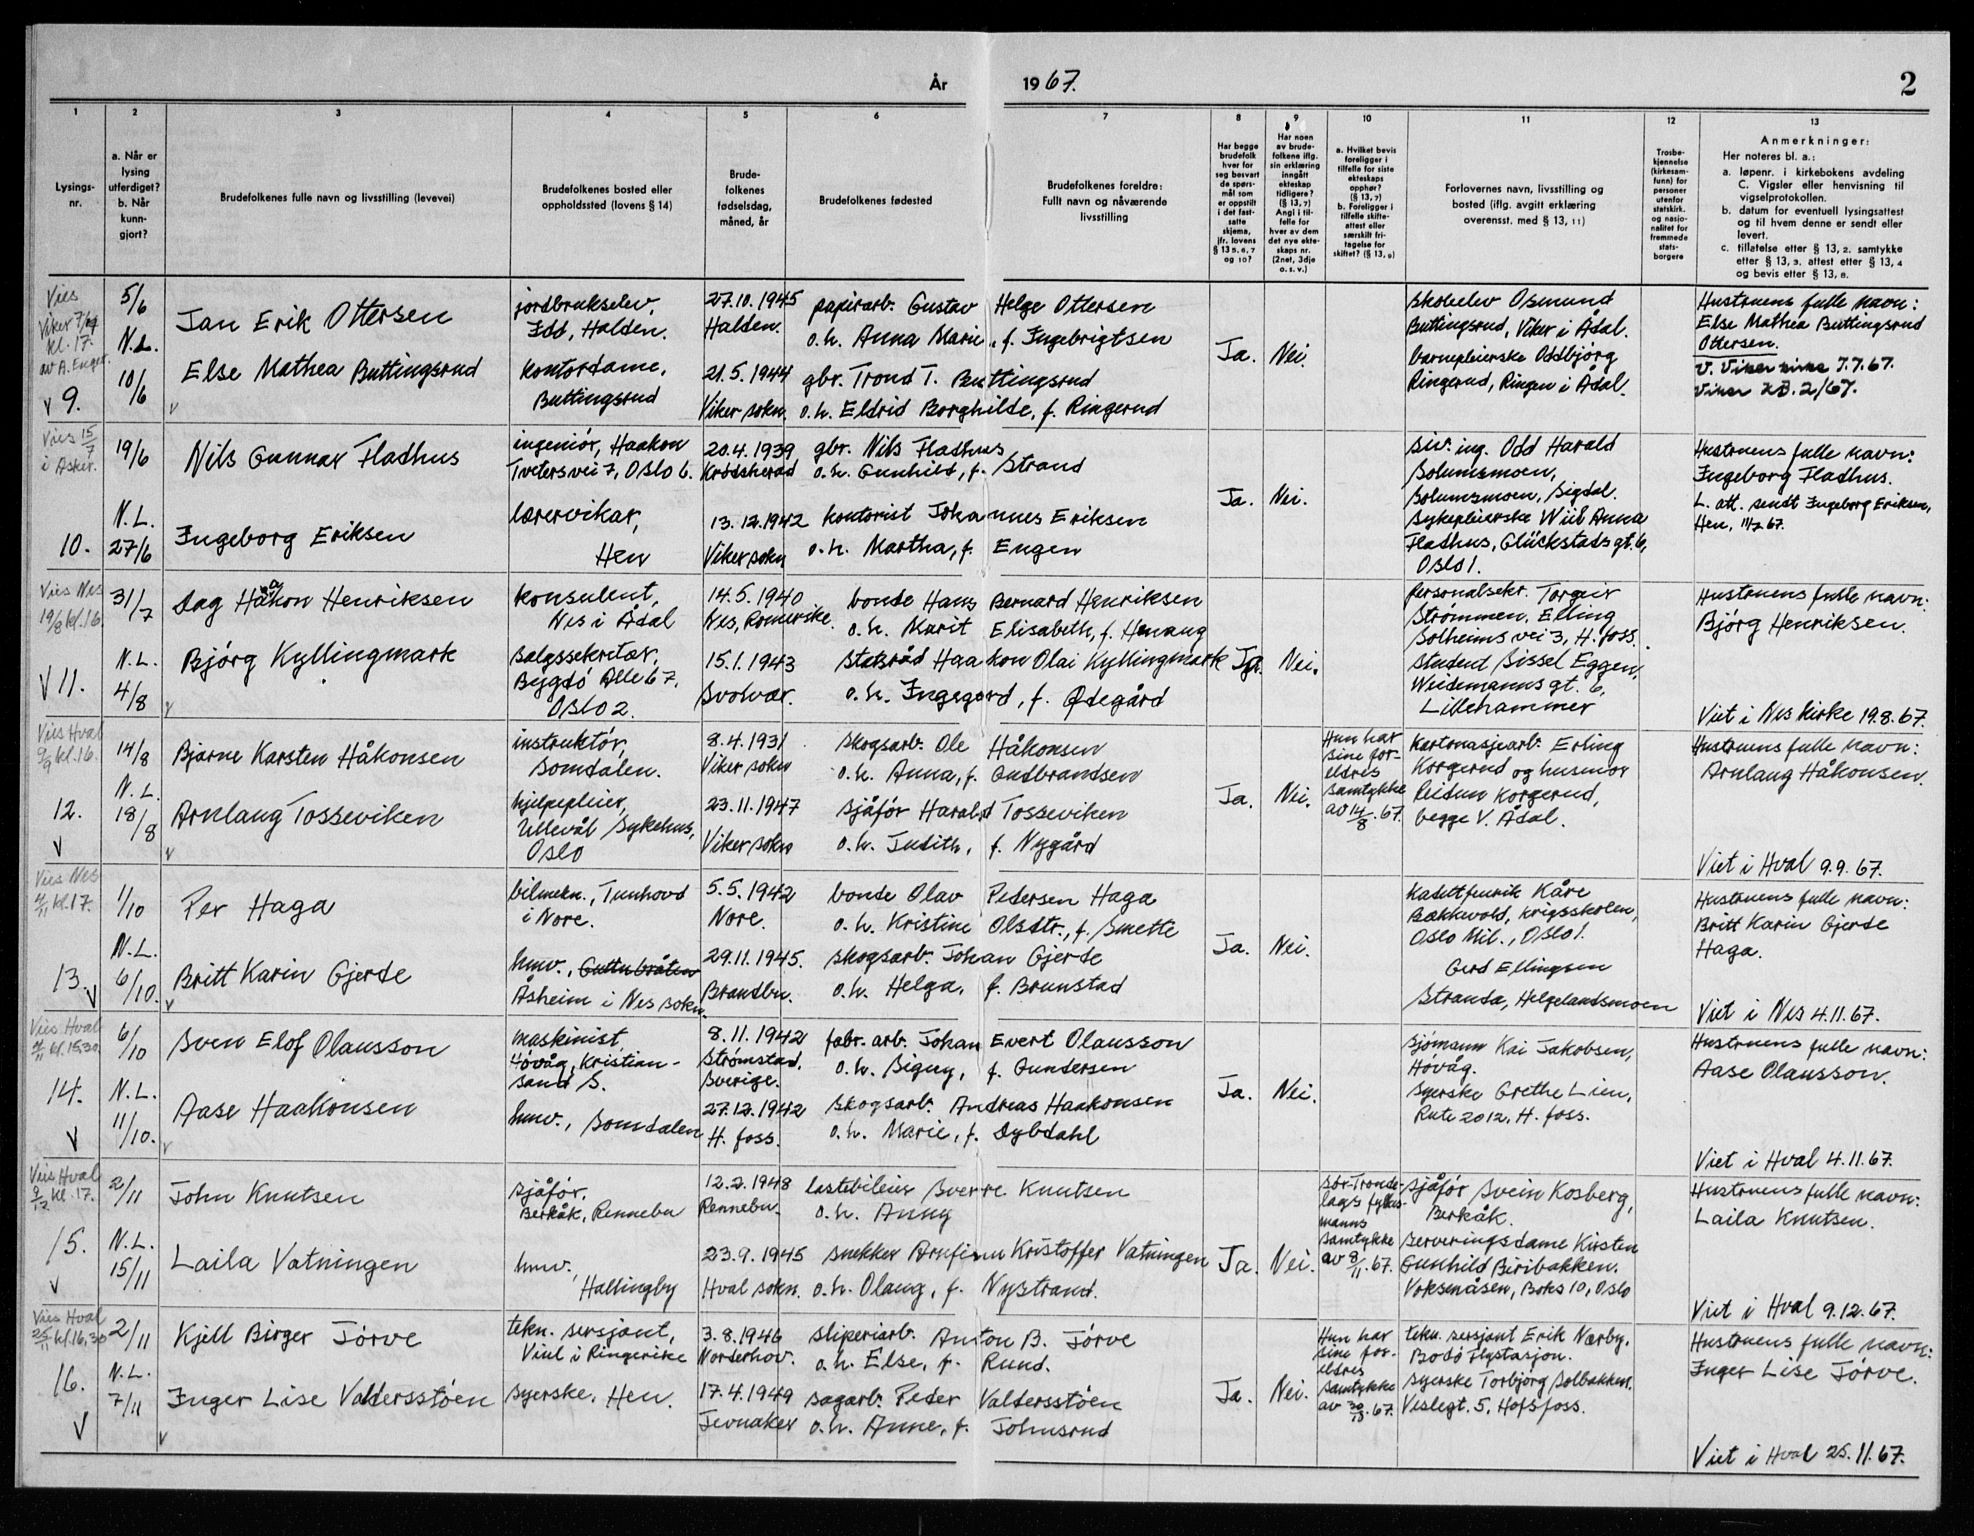 År 1967. 2
1 2 3 4 5 6 7 8 9 10 11 12 13
Lysings-
nr.
a. Når er
lysing
utferdiget?
b. Når
kunn-
gjort?
Brudefolkenes fulle navn og livsstilling (levevei)
Brudefolkenes bosted eller
oppholdssted (lovens § 14)
Brude-
folkenes
fødselsdag,
måned, år
Brudefolkenes fødested
Brudefolkenes foreldre:
Fullt navn og nåværende
livsstilling
Har begge
brudefolk
hver for
seg besvart
de spørs-
mål som
er oppstilt
i det fast-
satte
skjema,
jfr. lovens
§ 13 5, 6, 7
og 10?
Har noen
av brude-
folkene iflg.
sin erklæring
inngått
ekteskap
tidligere?
(§ 13, 7)
Angi i til-
felle for
hver av dem
det nye ekte-
skaps nr.
(2net, 3dje
o. s. v.)
a. Hvilket bevis
foreligger i
tilfelle for siste
ekteskaps
opphør?
(§ 13, 7)
b. Foreligger i
tilfelle skifte-
attest eller
særskilt fri-
tagelse for
skiftet? (§ 13, 9)
Forlovernes navn, livsstilling og
bosted (iflg. avgitt erklæring
overensst. med § 13, 11)
Trosbe-
kjennelse
(kirkesam-
funn) for
personer
utenfor
statskirk.
og nasjo-
nalitet for
fremmede
stats-
borgere
Anmerkninger:
Her noteres bl. a.:
a. løpenr. i kirkebokens avdeling
C. Vigsler eller henvisning til
vigselprotokollen.
b. datum for eventuell lysingsattest
og til hvem denne er sendt eller
levert.
c. tillatelse etter § 13, 2. samtykke
etter § 13, 3. attest etter § 13, 4
og bevis etter § 13, 8.
Vies
Viker 7/7 67
kl. 17.
av A. Enger.
v 9.
5/6
N.L.
10/6
Jan Erik Ottersen
Else Mathea Buttingsrud
jordbrukselev,
Idd, Halden.
kontordame,
Buttingsrud
27.10.1945
Halden.
21.5.1944
Viker sokn
papirarb. Gustav Helge Ottersen
o.h. Anna Marie, f. Ingebrigtsen
gbr. Trond T. Buttingsrud
o.h. Eldrid Borghilde, f. Ringerud
Ja. Nei.
skoleelev Osmund
Buttingsrud, Viker i Ådal.
barnepleierske Oddbjørg
Ringerud, Ringen i Ådal.
Hustruens fulle navn:
Else Mathea Buttingsrud
Ottersen.
V. Viker kirke 7.7.67.
Viker KB. 2/67.
Vies 15/7
i Asker.
10.
19/6
N.L.
27/6
Nils Gunnar Fladhus
Ingeborg Eriksen
ingeniør, Haakon
Tvetersvei 7, Oslo 6.
lærervikar,
Hen
20.4.1939
Krødsherad
13.12.1942
Viker sokn
gbr. Nils Fladhus
o.h. Gunhild, f. Strand
kontorist Johannes Eriksen
o.h. Martha, f. Engen
Ja. Nei.
siv. ing. Odd Harald
Solumsmoen,
Solumsmoen, Sigdal.
sykepleierske Wiil Anna
Fladhus, Glückstadsgt. 6,
Oslo 1.
Hustruens fulle navn:
Ingeborg Fladhus.
L. att. sendt Ingeborg Eriksen,
Hen, 11/7 67.
Vies Nes
19/8 kl. 16.
v 11.
31/7
N.L.
4/8
Dag Håkon Henriksen
Bjørg Kyllingmark
konsulent,
Nes i Ådal
salgssekretær,
Bygdø Alle 67,
Oslo 2.
14.5.1940
Nes, Romerike.
15.1.1943
Svolvær.
bonde Hans Bernard Henriksen
o.h. Marit Elisabeth, f. Henaug
statsråd Haakon Olai Kyllingmark
o.h. Ingegerd, f. Ødegård
Ja. Nei.
personalsekr. Torgeir
Strømmen, Elling
Solheimsvei 3, H.foss.
student Sissel Eggen,
Weidemannsgt. 6,
Lillehammer
Hustruens fulle navn:
Bjørg Henriksen.
Viet i Nes kirke 19.8.67.
Vies Hval
9/9 kl. 16.
12.
v
14/8
N.L.
18/8
Bjarne Karsten Håkonsen
Arnlaug Tosseviken
instruktør,
Somdalen.
hjelpepleier,
Ullevål sykehus,
Oslo
8.4.1931
Viker sokn
23.11.1947
Viker sokn
skogsarb. Ole Håkonsen
o.h. Anna, f. Gudbrandsen
sjåfør Harald Tosseviken
o.h. Judith, f. Nygård
Ja. Nei.
Hun har
sine for-
eldres
samtykke
av 14/8. 67.
kartonasjearb. Erling
Korgerud og husmor
Reidun Korgerud,
begge V. Ådal.
Hustruens fulle navn:
Arnlaug Håkonsen.
Viet i Hval 9.9.67.
Vies Nes
4/11 kl. 17.
13.
v
1/10
N.L.
6/10.
Per Haga
Britt Karin Gjerde
bilmekn., Tunhovd
i Nore.
hmv., Guttubråten
Åsheim i Nes sokn.
5.5.1942
Nore.
29.11.1945.
Brandbu.
bonde Olav Pedersen Haga
o.h. Kristine Olsdtr., f. Smette
skogsarb. Johan Gjerde
o.h. Helga, f. Brunstad
Ja. Nei.
kadettfenrik Kåre
Bakkevold, krigsskolen,
Oslo Mil., Oslo 1.
Gerd Ellingsen
Stranda, Helgelandsmoen
Hustruens fulle navn:
Britt Karin Gjerde
Haga.
Viet i Nes 4.11.67.
Vies Hval
4/11 kl. 15.30.
14.
v
6/10
N.L.
11/10.
Sven Elof Olausson
Aase Haakonsen
maskinist,
Høvåg, Kristian-
sand S.
hmv., Somdalen
8.11.1942
Strømstad,
Sverige.
27.12.1942
H. foss.
fabr. arb. Johan Evert Olausson
o.h. Signy, f. Gundersen
skogsarb. Andreas Haakonsen
o.h. Marie, f. Dybdahl
Ja. Nei.
sjømann Kai Jakobsen,
Høvåg.
syerske Grethe Lien,
Rute 2012, H. foss.
Hustruens fulle navn:
Aase Olausson.
Viet i Hval 4.11.67.
Vies Hval
9/12 kl. 17.
15.
v
2/11
N.L.
15/11
John Knutsen
Laila Vatningen
sjåfør,
Berkåk, Rennebu
hmv.,
Hallingby
12.2.1948
Rennebu.
23.9.1945
Hval sokn.
lastebileier Sverre Knutsen
o.h. Anny
snekker Arnfinn Kristoffer Vatningen
o.h. Olaug, f. Nystrand.
Ja. Nei.
Sør-Trønde-
lags fylkes-
manns
samtykke
av 8/11. 67.
sjåfør Svein Kosberg,
Berkåk.
serveringsdame Kirsten
Gunhild Biribakken.
Voksenåsen, Boks 10, Oslo
Hustruens fulle navn:
Laila Knutsen.
Viet i Hval 9.12.67.
Vies Hval
25/11 kl. 16,30
16.
v
2/11
N.L.
7/11
Kjell Birger Jørve
Inger Lise Valdersstøen
tekn. sersjant,
Viul i Ringerike
syerske, Hen.
3.8.1946
Norderhov.
17.4.1949
Jevnaker
sliperiarb. Anton B. Jørve
o.h. Else, f. Rund.
sagarb. Peder Valdersstøen
o.h. Anne, f. Johnsrud
Ja. Nei.
Hun har
sine for-
eldres
samtykke
av 30/10. 67.
tekn. sersjant Erik Nærby,
Bodø flystasjon.
syerske Torbjørg Solbakken.
Veslegt. 5, Hofsfoss.
Hustruens fulle navn:
Inger Lise Jørve.
Viet i Hval 25.11.67.